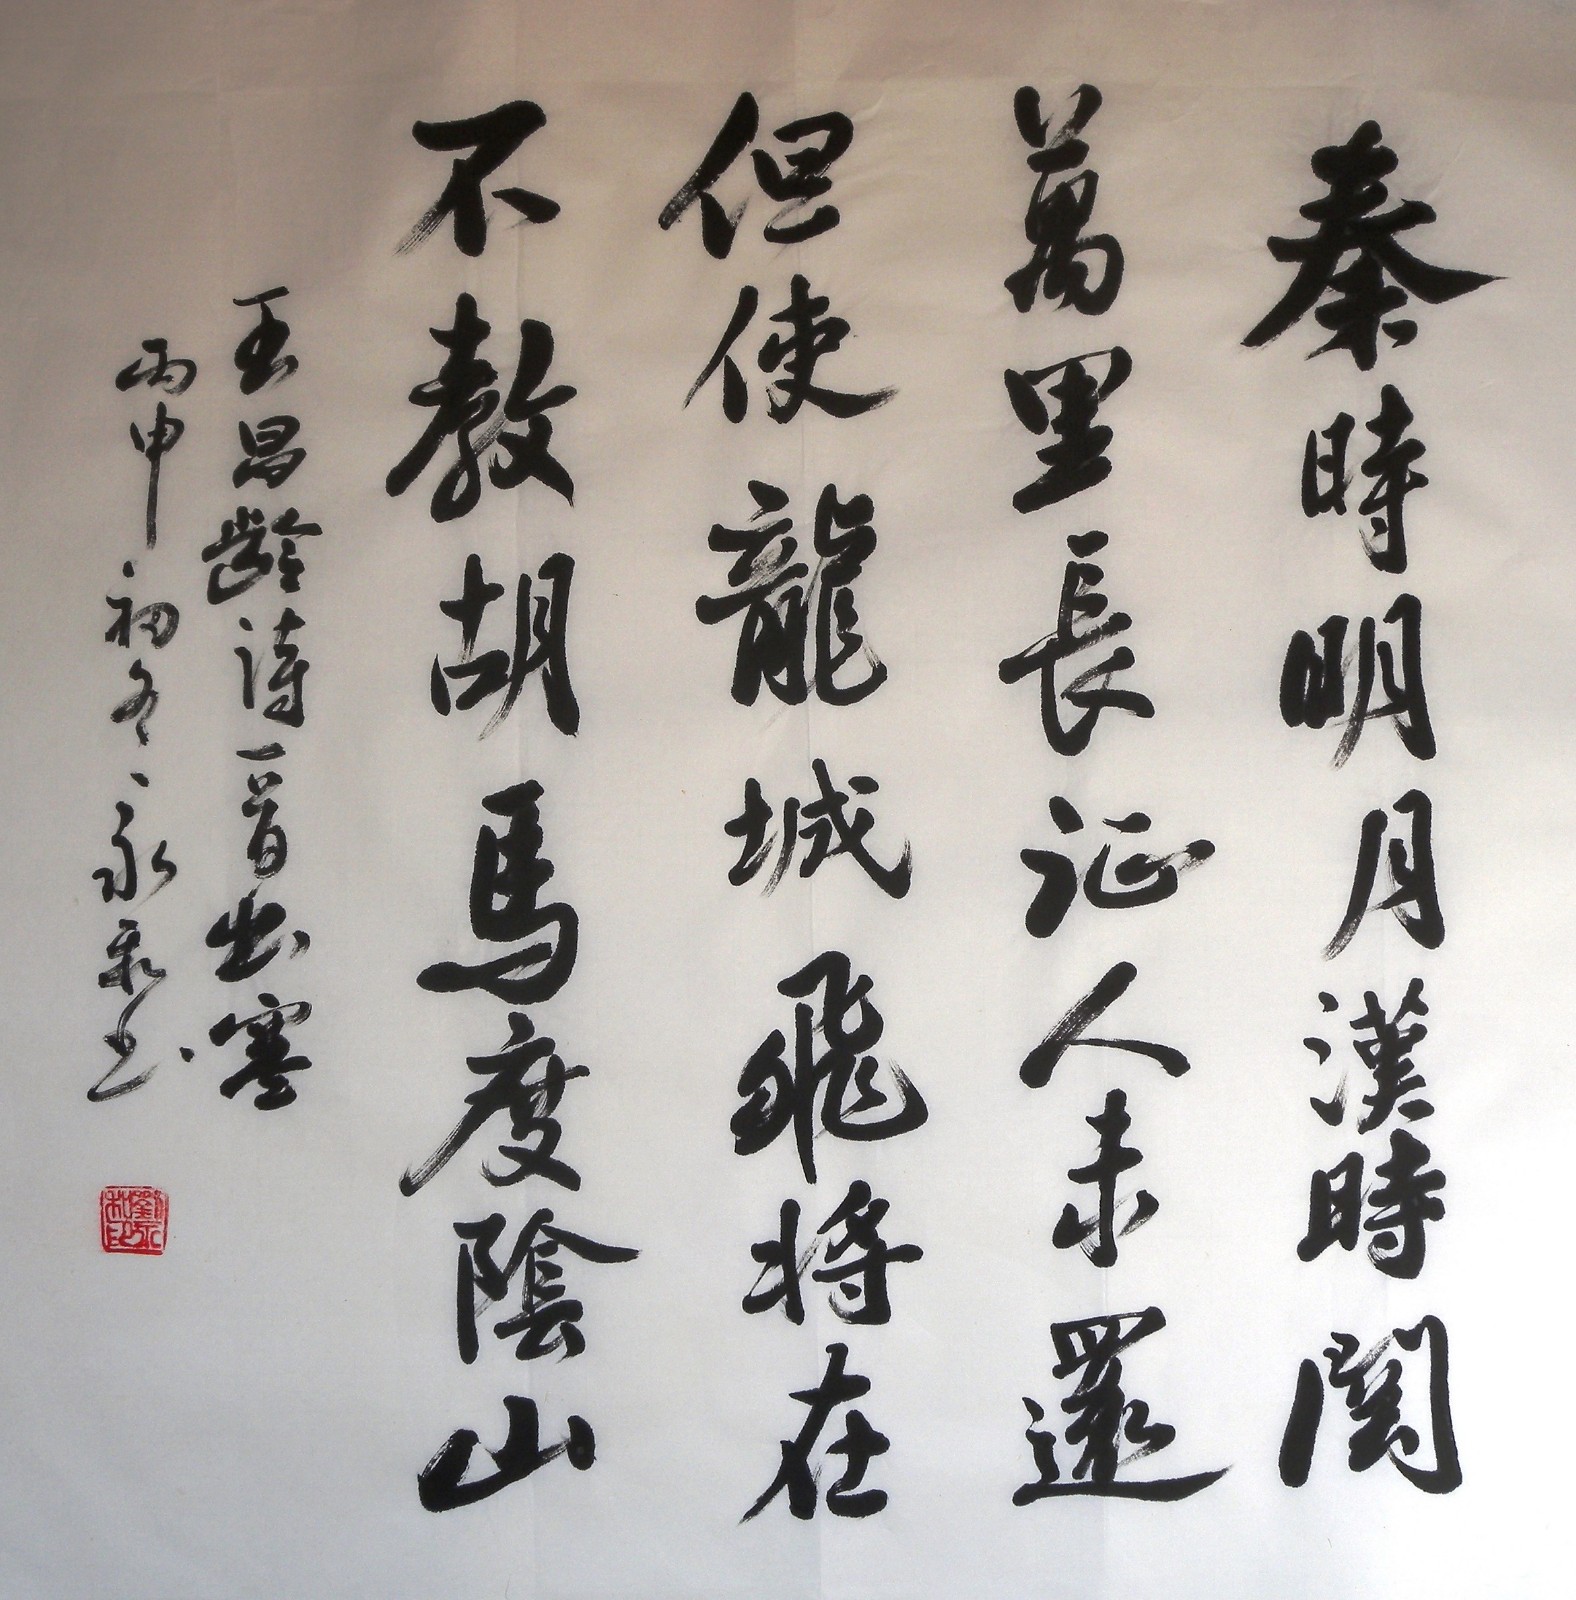 秦時明月漢時関
萬里長征人未還
但使龍城飛将在
不教胡馬度陰山
王昌齡詩一首出塞
丙申初冬永书